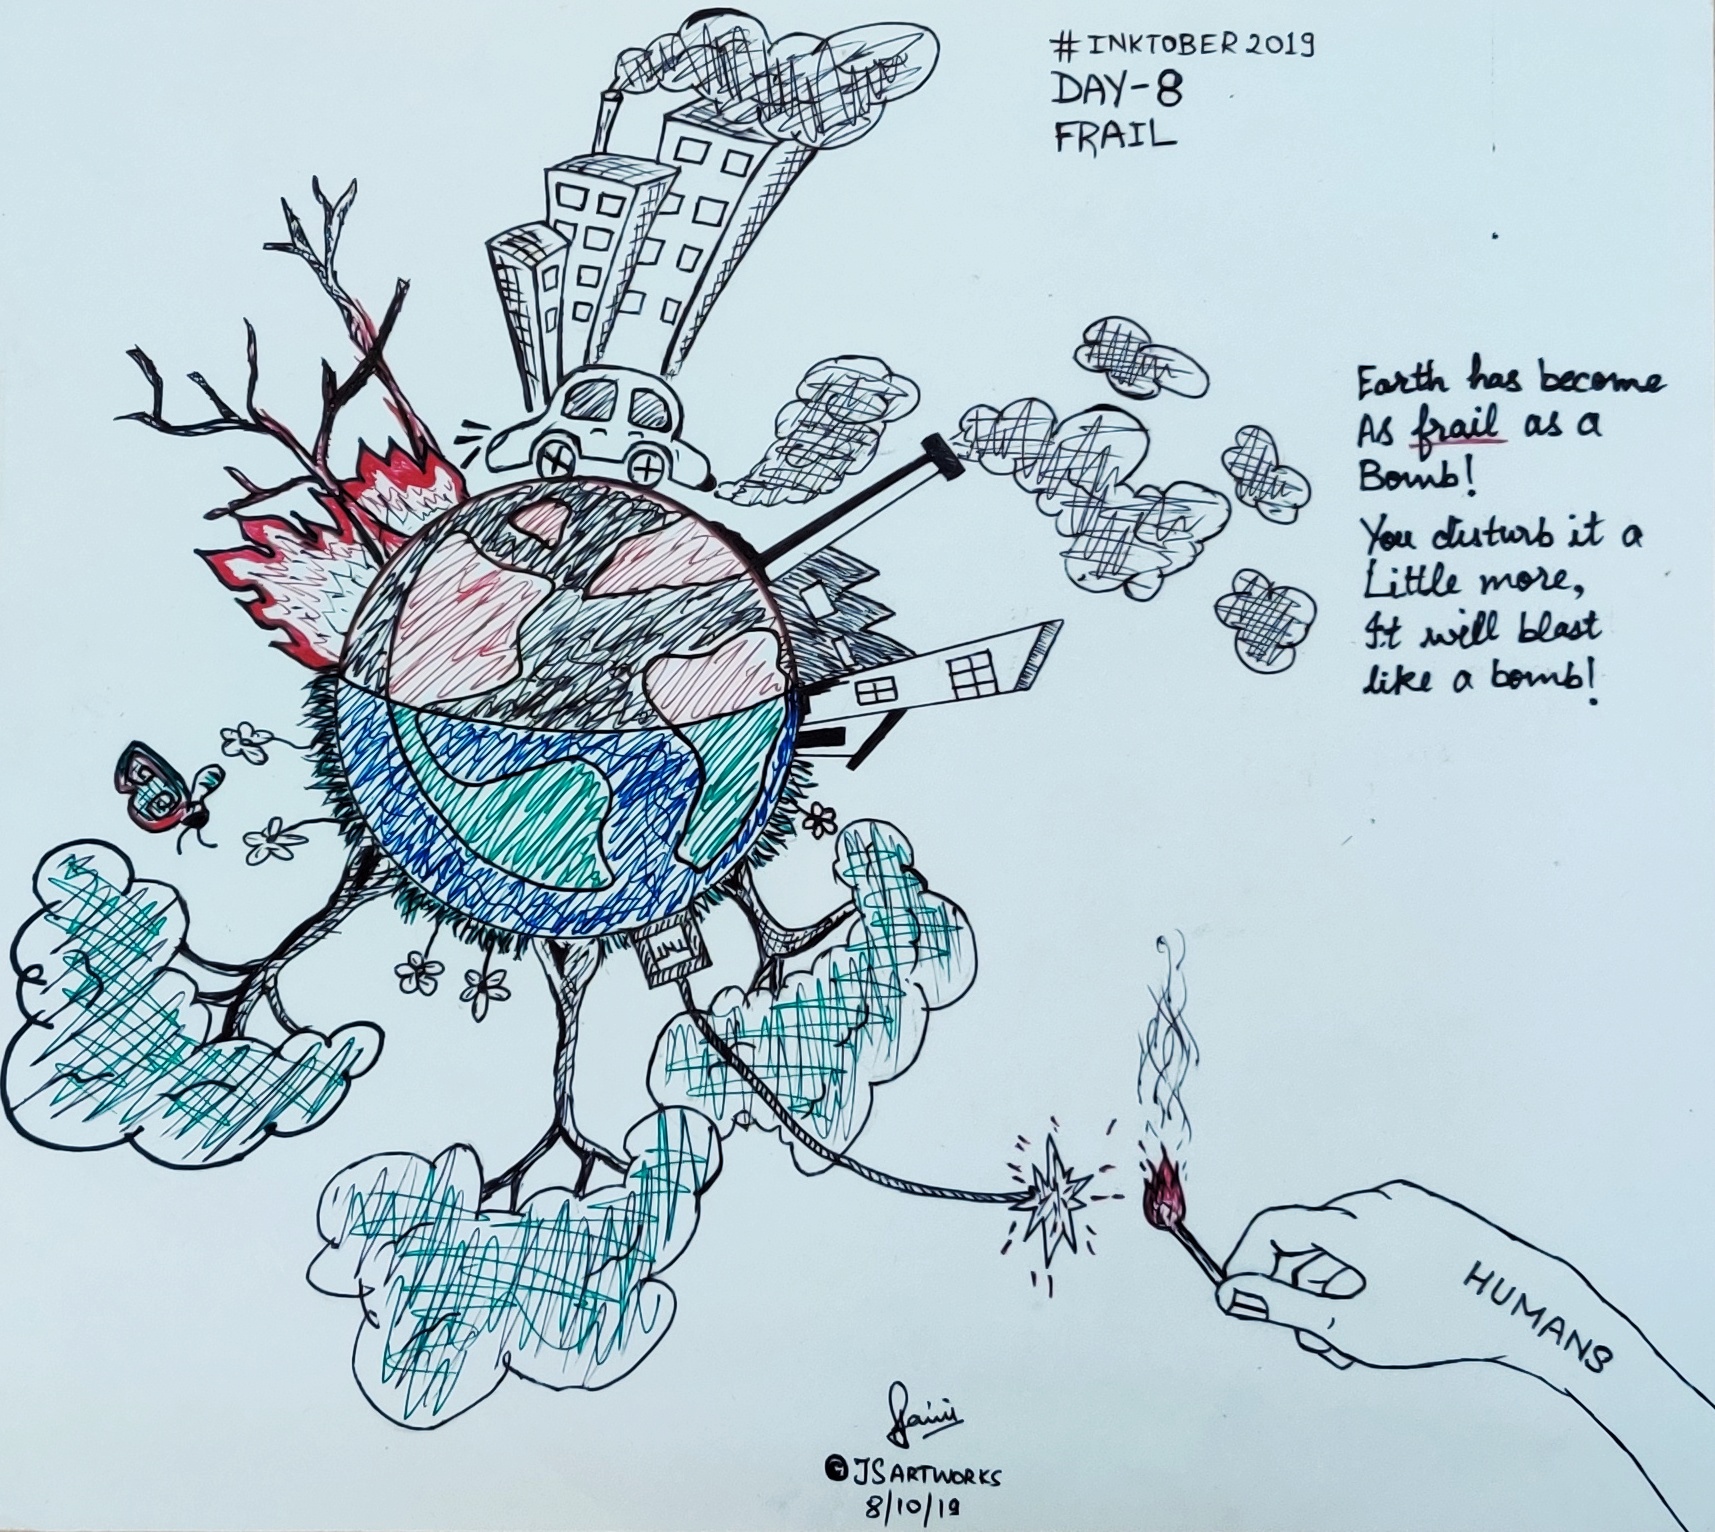 #INKTOBER 2019
DAY-8
FRAIL
Earth has become
As frail as a
Bomb!
You disturb it a
Little more,
It will blast
like a bomb!
TNT
HUMANS
©JSARTWORKS
8/10/19